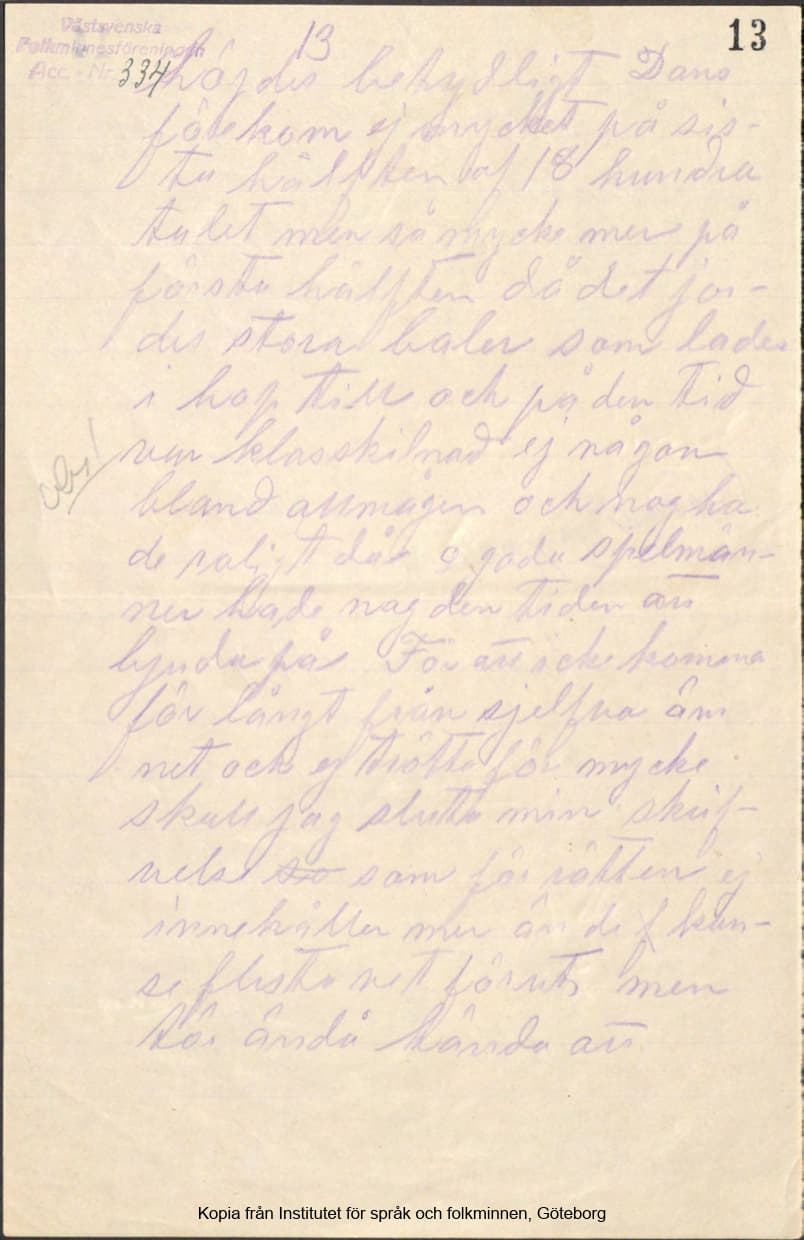 Västsvenska
Folkminnesföreningen
Acc.-Nr. 334
13
13
höjdes betydligt Dans
förekom ej mycket på sis-
ta hälften af 18 hundra
talet men så mycke mer på
första hälften då det jor-
des stora baler som lades
i hop till och på den tid
var klasskilnad ej någon
obs!
bland allmågen och nog ha
de roligt då o goda spelmän-
ner hade nog den tiden att
bjuda på För att icke komma
för långt från sjelfva äm
net och ej trötta för mycke
skall jag slutta min skrif-
velse so som för rätten ej
innehåller mer än de f kan-
se flesta vet förut men
tör ändå hända att
Kopia från Institutet för språk och folkminnen, Göteborg